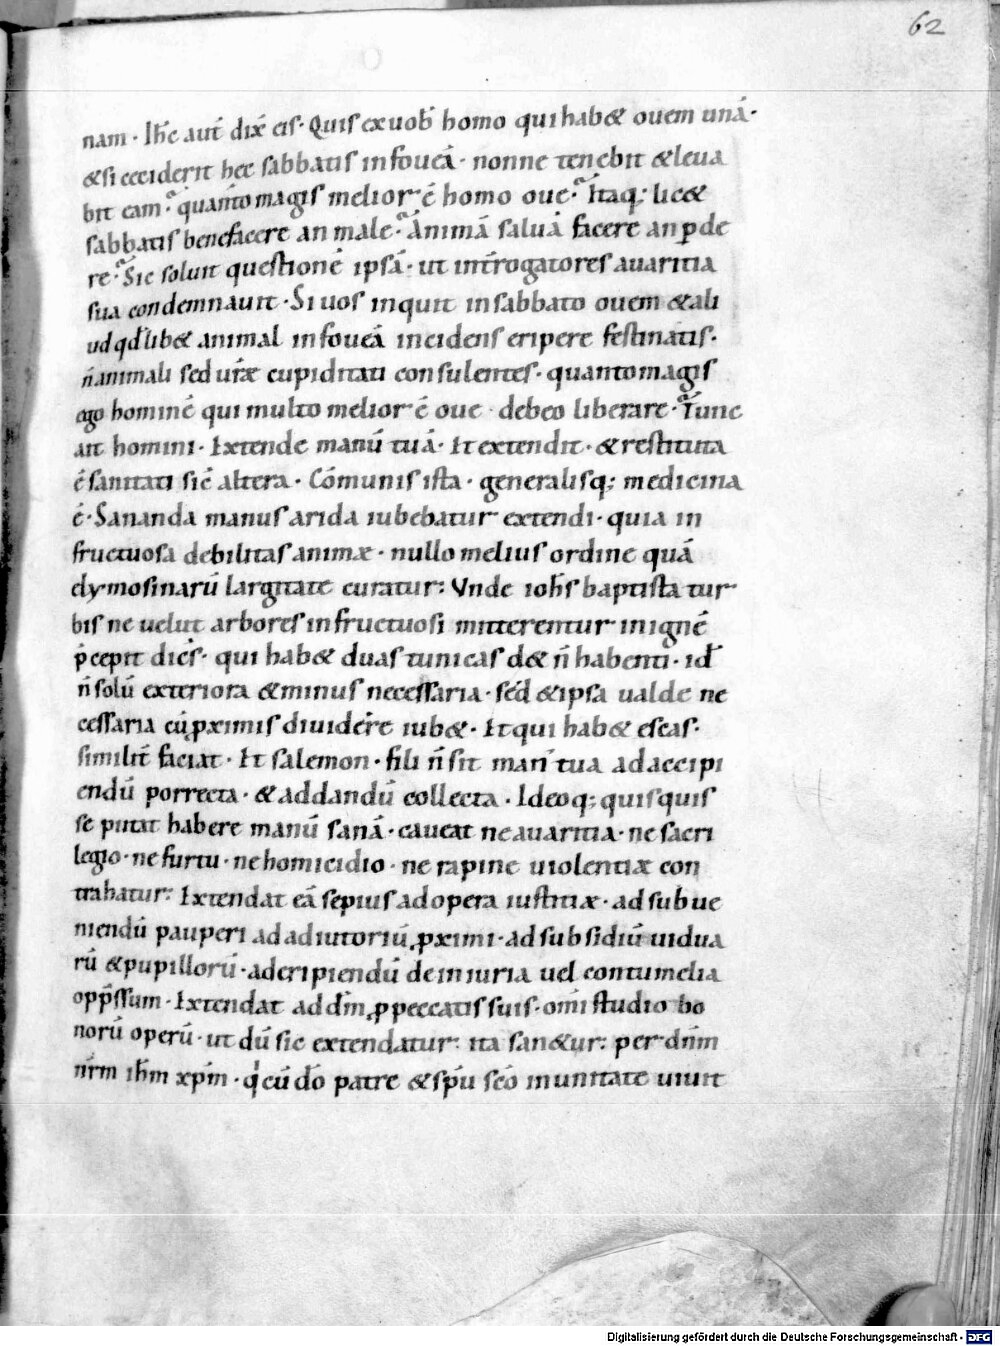 62
nam · Ihc aut̄ dix̄ eis · Quis ex uob̄ homo qui hab& ouem unā ·
& si ceciderit hec sabbatis in foueā · nonne tenebit & leua
bit eam · quantomagis melior ē homo oue · Itaq; lic&
sabbatis benefacere an male · Animā saluā facere an ꝑde
re · Sic soluit questionē ipsā · ut int̄rogatores auaritia
sua condemnauit · Si uos inquit in sabbato ouem & ali
ud qd̄lib& animal in foueā incidens eripere festinatis ·
n̄ animali sed ur̄æ cupiditati consulentes · quantomagis
ego hominē qui multo melior ē oue debeo liberare · Tunc
ait homini · Extende manū tuā · Et extendit · & restituta
ē sanitati sic̄ altera · Cōmunis ista · generalisq; medicina
ē · Sananda manus arida iubebatur extendi · quia in
fructuosa debilitas animæ · nullo melius ordine quā
elymosinarū largitate curatur : Vnde ioh̄s baptista tur
bis ne uelut arbores infructuosi mitterentur in ignē
p̄cepit dicēs · qui hab& duas tunicas d& n̄ habenti · id
n̄ solū exteriora & minus necessaria · sed & ipsa ualde ne
cessaria cū ꝓximis diuidere iub& · Et qui hab& escas ·
similit̄ faciat · Et salemon · fili n̄ sit man' tua ad accipi
endū porrecta · & ad dandū collecta · Ideoq; quisquis
se putat habere manū sanā · caueat ne auaritia · ne sacri
legio · ne furtu · ne homicidio · ne rapine uiolentiæ con
trahatur : Extendat eā sepius ad opera iustitiæ · ad subue
niendū pauperi ad adiutoriū ꝓximi · ad subsidiū uidua
rū & pupillorū · ad eripiendū de iniuria uel contumelia
opp̄ssum · Extendat ad dn̄m ꝓ peccatis suis · omī studio bo
norū operū · ut dū sic extendatur : ita san&ur : per dn̄m
nr̄m ih̄m xp̄m · q̇ cū dō patre & sp̄u scō in unitate uiuit
Digitalisierung gefördert durch die Deutsche Forschungsgemeinschaft - DFG